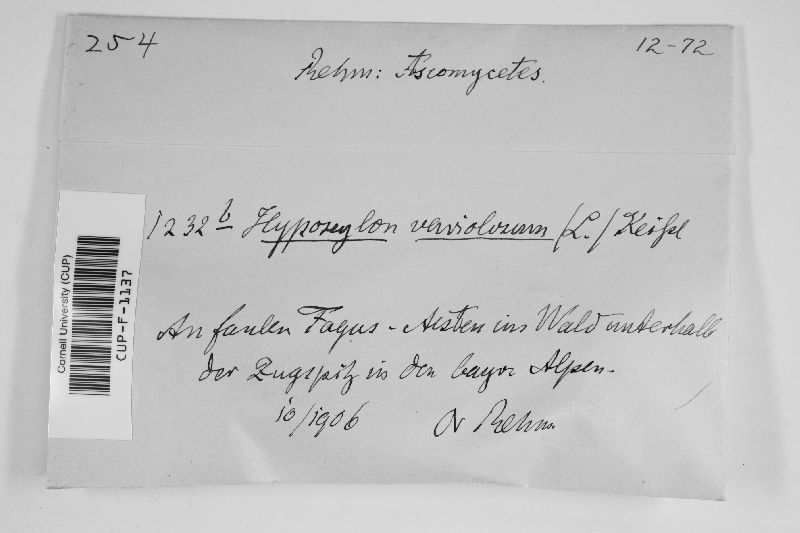 254
12-72
Rehm: Ascomycetes.
1232 b Hypoxylon variolosum (L.) Keißl
An faulen Fagus-Aesten im Wald unterhalb
der Zugspitz in den bayr. Alpen.
10/1906 Dr Rehm.
Cornell University (CUP)
CUP-F-1137